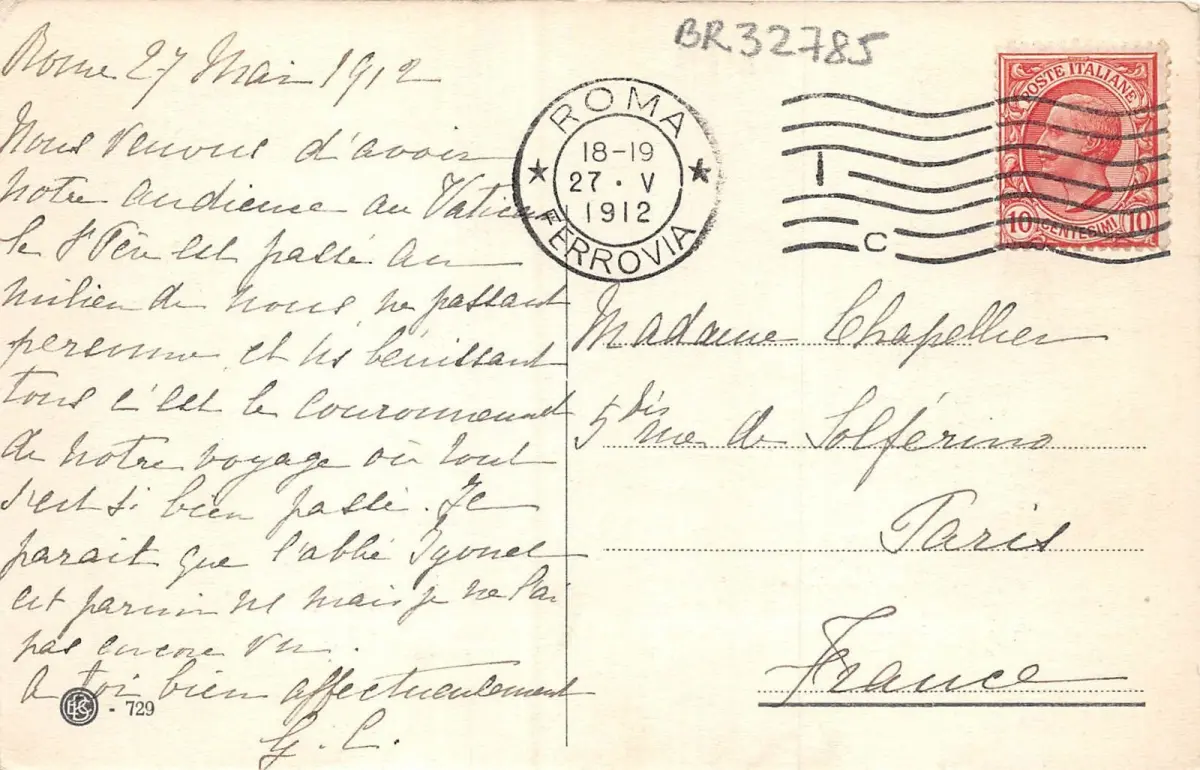 BR32785
Rome 27 Mai 1912
Nous venons d'avoir
notre audience au Vatican
le St Père est passé au
milieu de nous, ne passant
personne et ns bénissant
tous c'est le couronnement
de notre voyage où tout
s'est si bien passé. Il
parait que l'abbé
est parmi ns mais je ne l'ai
pas encore vu.
A toi bien affectueusement
G. C.
729
ROMA
18-19
27 · V
1912
FERROVIA
I
C
POSTE ITALIANE
10 CENTESIMI 10
Madame Chapellier
5 bis rue de Solférino
Paris
France